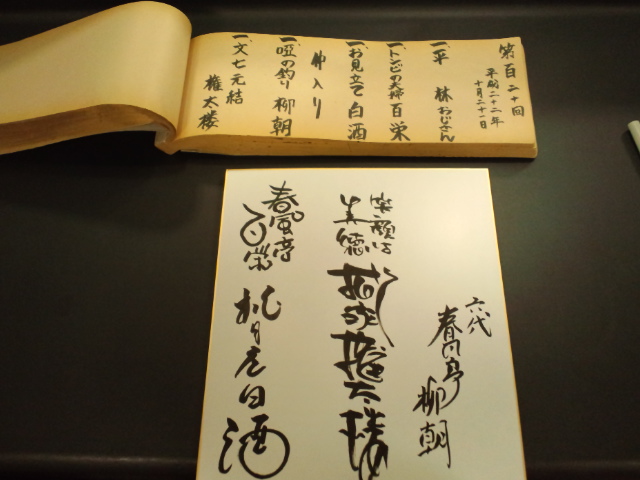 第百二十回
平成二十二年
十月二十一日
一、平林 おじさん
一、トンビの夫婦 百栄
一、お見立て 白酒
仲入り
一、唖の釣り 柳朝
一、文七元結 権太楼
六代
春風亭柳朝
笑顔は
美徳
柳家権太楼
春風亭
百栄
桃月庵白酒